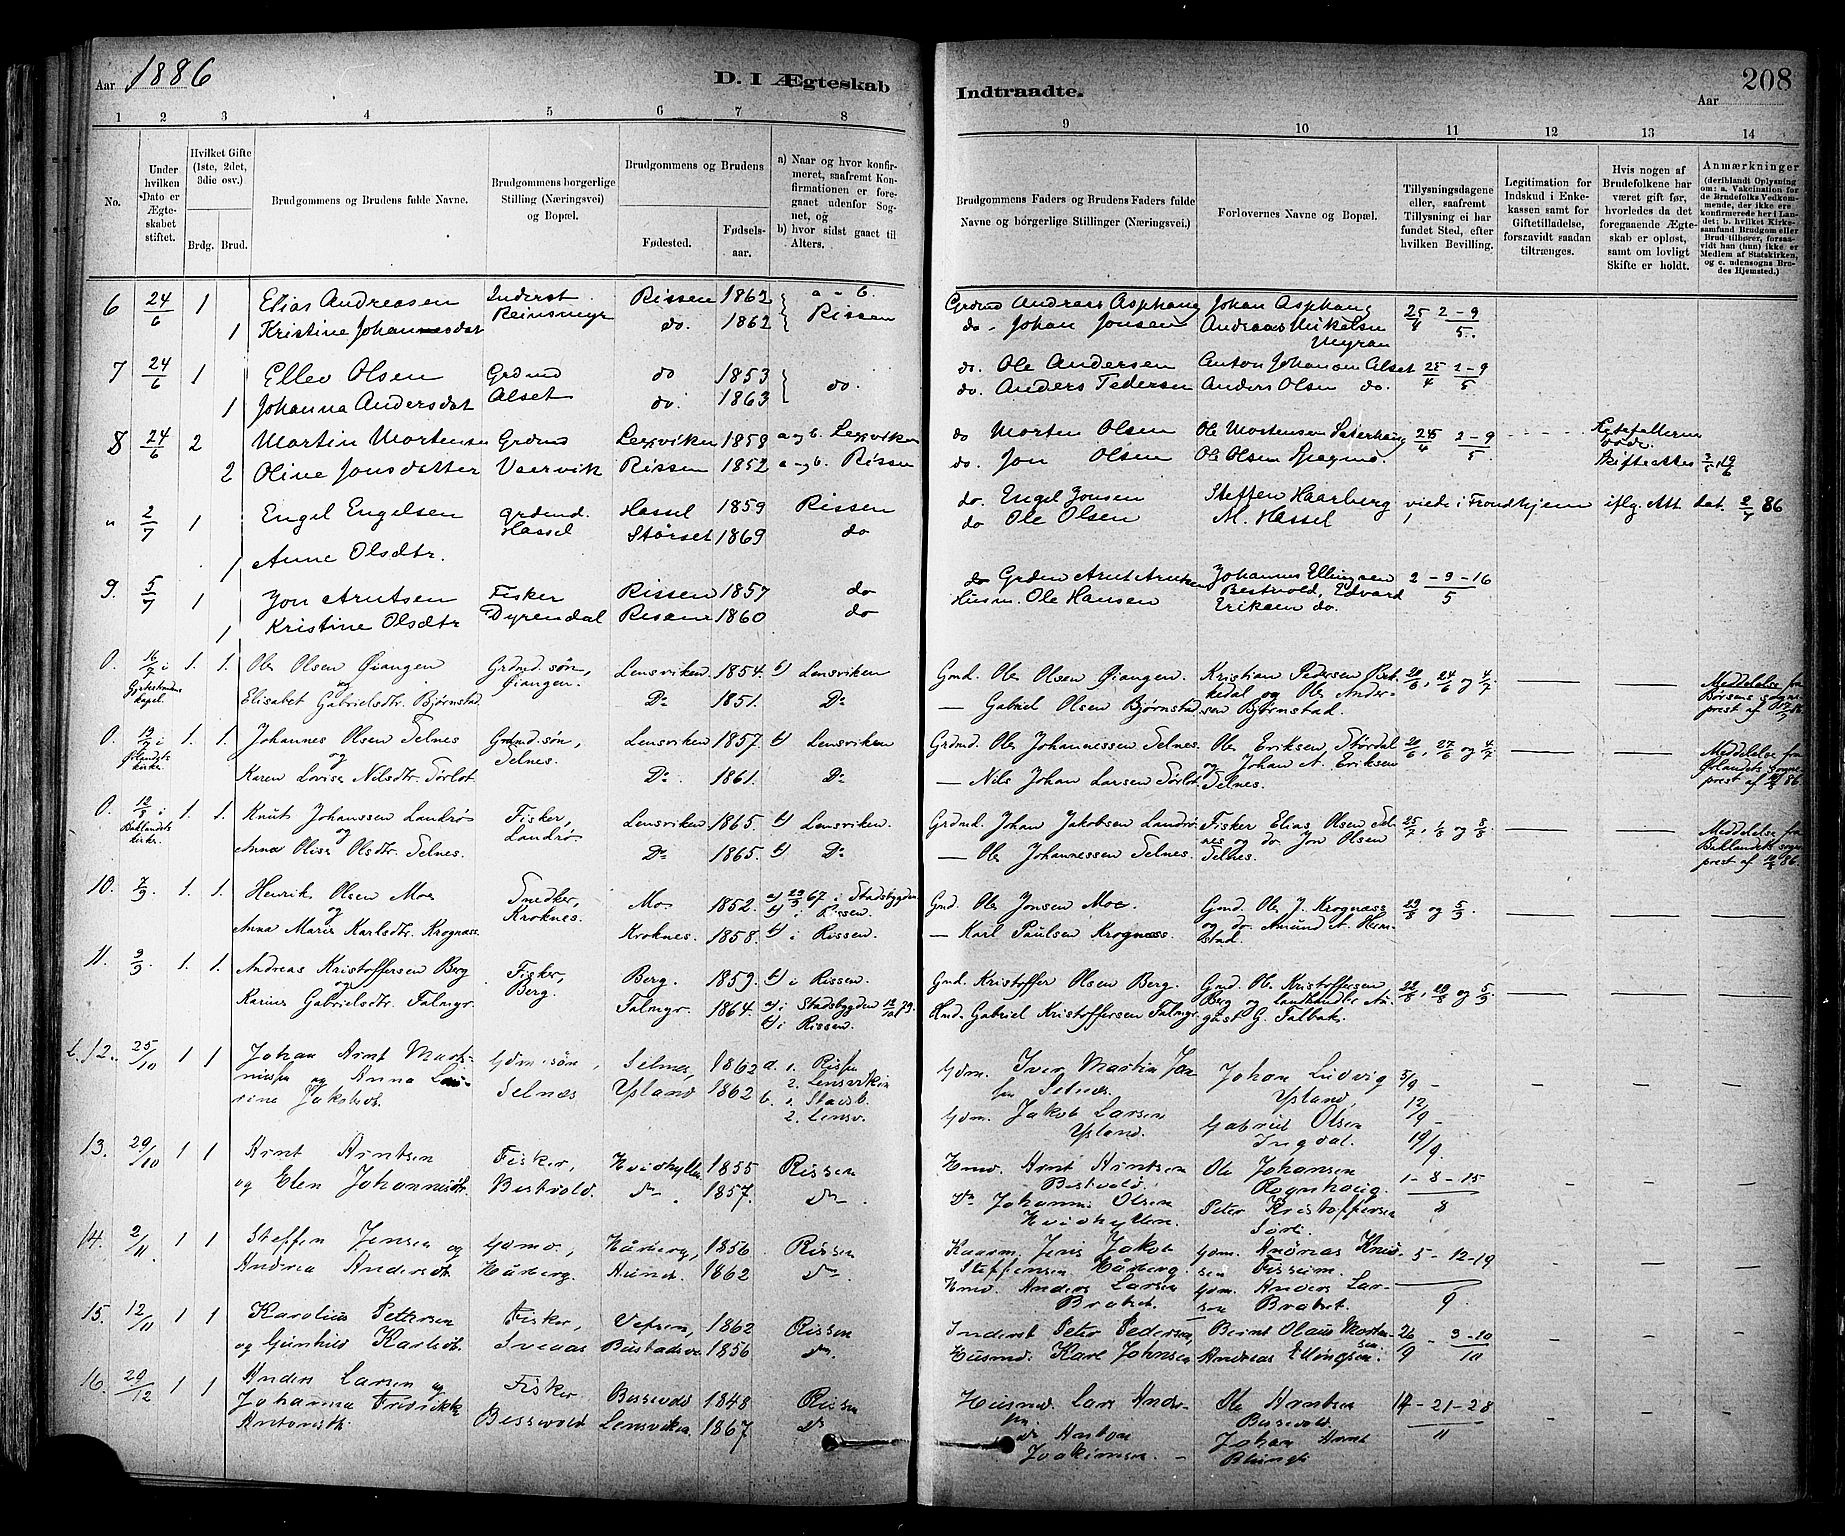 Aar 1886
D. I Ægteskab
Indtraadte.
Aar
208
1 2 3 4 5 6 7 8 9 10 11 12 13 14
No.
Under hvilken Dato er Ægteskabet stiftet.
Hvilket Gifte (1ste, 2det, 3die osv.)
Brdg. Brud.
Brudgommens og Brudens fulde Navne.
Brudgommens borgerlige Stilling (Næringsvei) og Bopæl.
Brudgommens og Brudens
Fødested.
Fødselsaar.
a) Naar og hvor konfirmeret, saafremt Konfirmationen er foregaaet udenfor Sognet, og
b) hvor sidst gaaet til Alters.
Brudgommens Faders og Brudens Faders fulde Navne og borgerlige Stillinger (Næringsvei.)
Forlovernes Navne og Bopæl.
Tillysningsdagene eller, saafremt Tillysning ei har fundet Sted, efter hvilken Bevilling.
Legitimation for Indskud i Enkekassen samt for Giftetilladelse, forsaavidt saadan tiltrænges.
Hvis nogen af Brudefolkene har været gift før, hvorledes da det foregaaende Ægteskab er opløst, samt om lovligt Skifte er holdt.
Anmærkninger (deriblandt Oplysning om: a. Vakcination for de Brudefolks Vedkommende, der ikke ere konfirmerede her i Landet; b. hvilket Kirkesamfund Brudgom eller Brud tilhører, forsaavidt han (hun) ikke er Medlem af Statskirken, og c. udensogns Brudes Hjemsted.)
6 24/6 1 Elias Andreasen Inderst Rissen 1862 a - b. Grdmd Andreas Asphaug Johan Asphaug 25/4 2 - 9/5
1 Kristine Johannesdat Reinsmyr do. 1862 Rissen do. Johan Jonsen Andreas Mikelsen Myran
7 24/6 1 Ellev Olsen Grdmd do 1853 do. do. Ole Andersen Anton Johansen Alset 25/4 2 - 9/5
1 Johanna Andersdat Alset do. 1863 do. Anders Pedersen Anders Olsen do.
8 24/6 2 Martin Mortensen Grdmd Lexviken 1858 a og b. Lexviken do Morten Olsen Ole Mortensen Saterhaug 25/4 2 - 9/5
2 Oline Jonsdatter Vaarvik Rissen 1852 a og b. Rissen do. Jon Olsen Ole Olsen
" 2/7 1 Engel Engelsen Grdmd. Hassel 1859 Rissen do. Engel Jonsen Steffen Haarberg viede i Trondhjem iflg. Att. dat. 2/7 86
1 Anne Olsdtr. Hassel Størset 1869 do do Ole Olsen M. Hassel
9. 5/7 1 Jon Arntsen Fisker Rissen 1857 do do Grdm Arnt Arntsen Johannes Ellingsen 2 - 9 - 16/5
1 Kristine Olsdtr Dyrendal Rissen 1860 do Husm. Ole Hansen Bestvold, Edvard Eriksen do.
0. 16/7 i 1. 1. Ole Olsen Øiangen Grdmd. søn, Lensviken 1854. b) Lensviken Gmd. Ole Olsen Øiangen. Kristian Pedersen 20/6, 24/6 og 4/7
kapel. og Elisabet Gabrielsdtr. Bjørnstad Øiangen. Do 1851. Do — Gabriel Olsen Bjørnstad og Ole Andersen Bjørnstad. Meddelelse fra Børsens sogneprest af
0. i Ørlandets kirke 1. 1. Johannes Olsen Selnes Grdmd søn, Lensviken 1857. b) Lensviken Grdmd. Ole Johannessen Selnes. Ole Eriksen, Størdal 20/6, 27/6 og 4/7
og Karen Lovise Nilsdtr. Sørlot. Selnes. Do. 1861. Do — Nils Johan Larsen Sørlot. og Johan A. Eriksen Selnes. Meddelelse fra Ørlandets sogneprest af
0. i Baklandets kirke 1. 1. Knut Johanssen Landrø Fisker, Lensviken 1865. b) Lensviken. Grdmd. Johan Jakobsen Landrø. Fisker Elias Olsen Selnes 25/7, 1/8 og 8/8
og Anna Olise Olsdtr. Selnes. Landrø Do 1865. b) Do — Ole Johannessen Selnes. og do. Jon Olsen Selnes. Meddelelse fra Baklandets sogneprest af
10. 7/9 1. 1. Henrik Olsen Moe Snedker, Mo 1852. a) 29/9 67 i Stadsbygden Gmd. Ole Jonsen Moe. Gmd. Ole J. Krognæss 29/8 og 5/9
og Anna Marie Karlsdtr. Krognæss Kroknes. Kroknes. 1858. b) i Rissen. — Karl Paulsen Krognæss. og do. Amund A. Hemstad.
11. 9/9. 1. 1. Andreas Kristoffersen Berg Fisker, Berg. 1859. b) i Rissen. Gmd. Kristoffer Olsen Berg. Gmd. Ole Kristoffersen 22/8, 29/8 og 5/9
og Karine Gabrielsdtr. Falmyr Berg. Falmyr. 1864. a) i Stadsbygden 79. b) i Rissen. Hmd. Gabriel Kristoffersen Falmyr. Berg og landhandler August G. Falbak.
12. 25/10 1 1 Johan Arnt Martinussen og Anna Laurine Jakobsdt. Gdm. søn, Selnæs Selnæs, Ysland 1862 1862 a. 1. Rissen 2. Lensviken b. 1. Stadsb. 2. Lensv. Gdm. Iver Martin Jonsen Selnæs Gdm. Jakob Larsen Ysland. Johan Ludvig Ysland, Gabriel Olsen Ingdal. 5/9 - 12/9 - 19/9.
13. 29/10 1 1 Arnt Arntsen og Elen Johannesdt. Fisker, Bestvold. Kvidhyllen do. 1855 1857. Rissen do Hmd. Arnt Arntsen Bestvold. do Johannes Olsen Kvidhyllen. Ole Johansen Rognhaug. Peter Kristoffersen Sørli. 1 - 8 - 15/8
14. 2/11 1 1 Steffen Jensen og Andrea Andersdt. Gdmd., Hårberg. Hårberg, 1856. 1862 Rissen do. Jens Jakob Steffensen Hårberg. Hmd. Anders Larsen Bratset. Gdm. Andreas Knudsen Fisseim. Gdm. Anders Larsen Bratset. 5 - 12 - 19/9.
15. 12/11 1 1 Karolius Pettersen og Gunhild Karlsdt. Fisker, Sveaas Vefsen, 1862 1856 Rissen do Inderst Peter Pedersen, Husmd. Karl Johnsen Bernt Olaus Mortensen. Andreas Ellingsen. 26/9 - 3 - 10/10
16. 29/12 1 1 Anders Larsen og Johanna Fredrikke Antonsdt. Fisker Bessevold Bessevold Lensviken. 1848 1867 Rissen do Husmd. Lars Andersen do Anton Joakimsen Ole Arntsen Bessevold. Johan Arnt 14 - 21 - 28/11